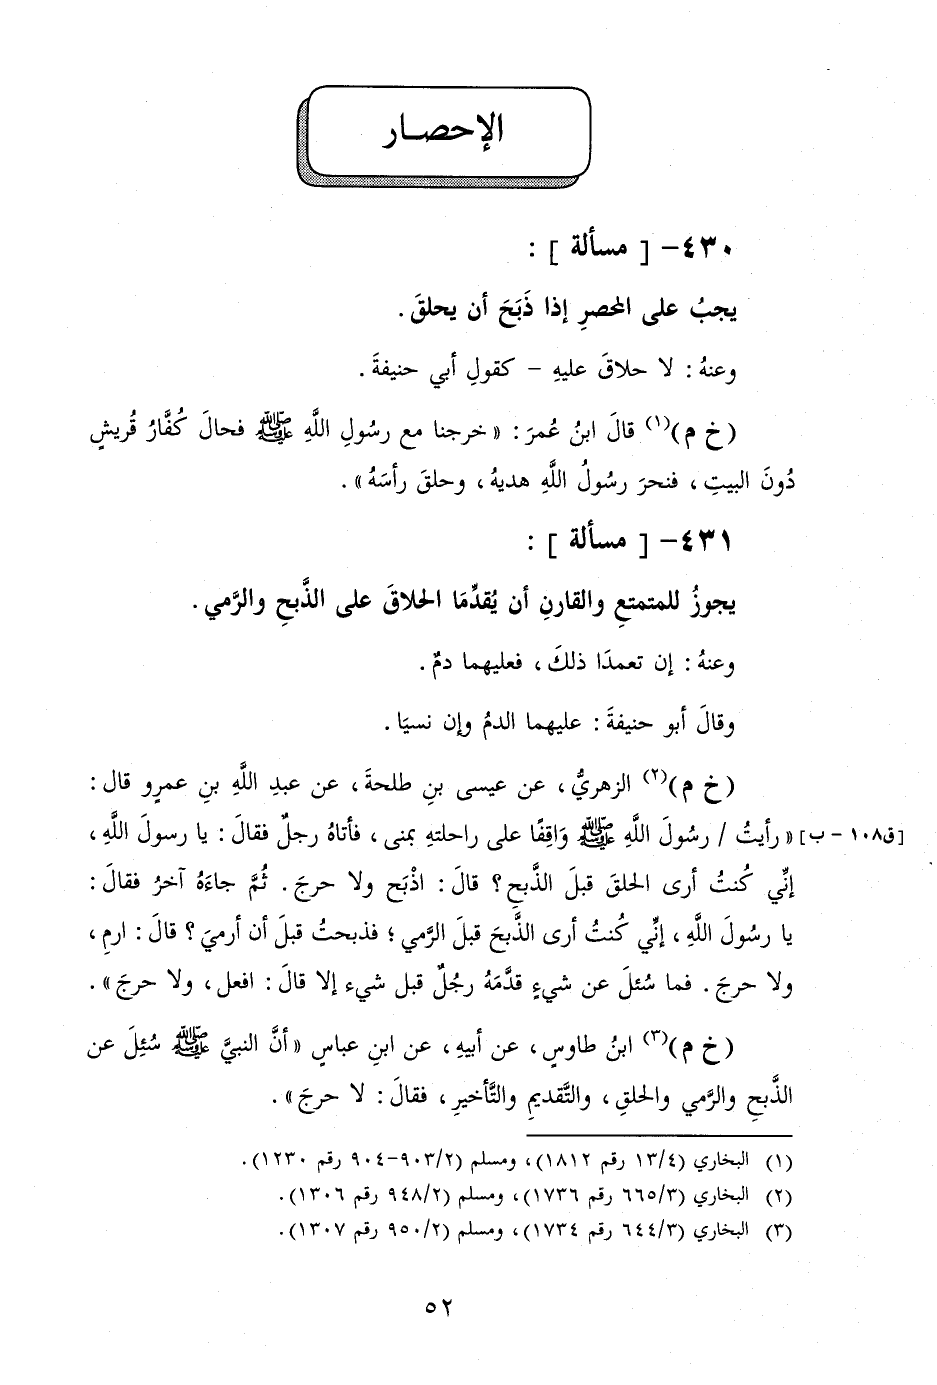 الإحصـار
٤٣٠- [ مسألة ] :
يجبُ على المحصرِ إذا ذَبَحَ أن يحلقَ .
وعنهُ : لا حلاقَ عليهِ – كقولِ أبي حنيفةَ .
(خ م)(١) قالَ ابنُ عُمرَ : «خرجنا مع رسُولِ اللَّهِ ﷺ فحالَ كُفَّارُ قُريشٍ
دُونَ البيتِ ، فنحرَ رسُولُ اللَّهِ هديهُ ، وحلقَ رأسَهُ» .
٤٣١- [ مسألة ] :
يجوزُ للمتمتعِ والقارنِ أن يُقدِّمَا الحلاقَ على الذَّبحِ والرَّمي .
وعنهُ : إن تعمدَا ذلكَ ، فعليهما دمٌ .
وقالَ أبو حنيفةَ : عليهما الدمُ وإن نسيَا .
(خ م)(٢) الزهريُّ ، عن عيسى بنِ طلحةَ ، عن عبدِ اللَّهِ بنِ عمرٍو قال :
[ق١٠٨ – ب] «رأيتُ / رسُولَ اللَّهِ ﷺ وَاقِفًا على راحلتهِ بمنى ، فأتاهُ رجلٌ فقالَ : يا رسولَ اللَّهِ ،
إنِّي كُنتُ أرى الحلقَ قبلَ الذَّبحِ ؟ قالَ : اذْبَح ولا حرجَ . ثُمَّ جاءَهُ آخرُ فقالَ :
يا رسُولَ اللَّهِ ، إنِّي كُنتُ أرى الذَّبحَ قبلَ الرَّمي ؛ فذبحتُ قبلَ أن أرميَ ؟ قالَ : ارمِ ،
ولا حرجَ . فما سُئلَ عن شيءٍ قدَّمَهُ رجُلٌ قبل شيء إلا قالَ : افعل ، ولا حرجَ» .
(خ م)(٣) ابنُ طاوسٍ ، عن أبيهِ ، عن ابنِ عباسٍ «أنَّ النبيَّ ﷺ سُئِلَ عن
الذَّبحِ والرَّمي والحلقِ ، والتَّقديمِ والتَّأخيرِ ، فقالَ : لا حرجَ» .
(١) البخاري (١٣/٤ رقم ١٨١٢) ، ومسلم (٩٠٣/٢-٩٠٤ رقم ١٢٣٠) .
(٢) البخاري (٦٦٥/٣ رقم ١٧٣٦) ، ومسلم (٩٤٨/٢ رقم ١٣٠٦) .
(٣) البخاري (٦٤٤/٣ رقم ١٧٣٤) ، ومسلم (٩٥٠/٢ رقم ١٣٠٧) .
٥٢